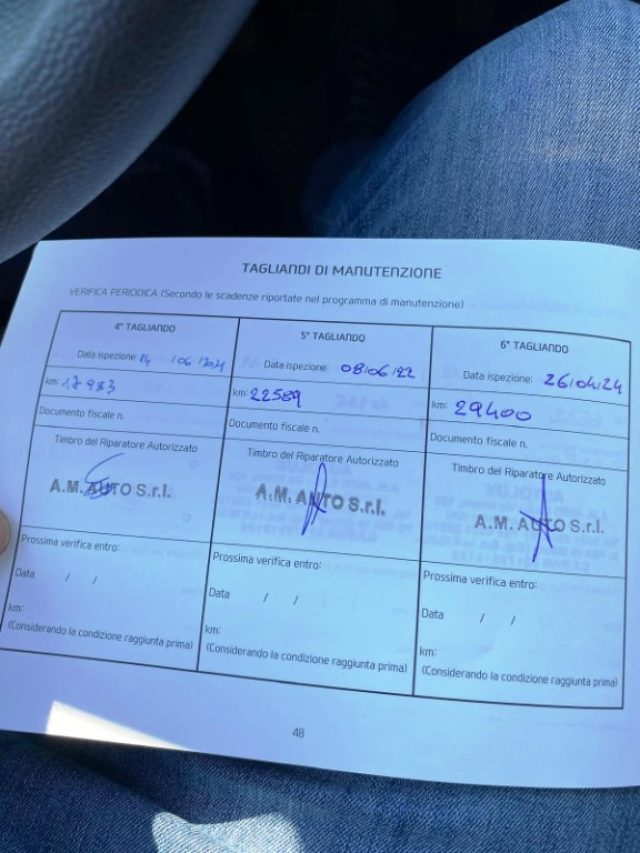 TAGLIANDI DI MANUTENZIONE
VERIFICA PERIODICA (Secondo le scadenze riportate nel programma di manutenzione)
4° TAGLIANDO
Data ispezione: 14 /06/2021
km: 17983
Documento fiscale n.
Timbro del Riparatore Autorizzato
A.M. AUTO S.r.l.
Prossima verifica entro:
Data / /
km:
(Considerando la condizione raggiunta prima)
5° TAGLIANDO
Data ispezione: 08/06/22
km: 22589
Documento fiscale n.
Timbro del Riparatore Autorizzato
A.M. AUTO S.r.l.
Prossima verifica entro:
Data / /
km:
(Considerando la condizione raggiunta prima)
6° TAGLIANDO
Data ispezione: 26/04/24
km: 29400
Documento fiscale n.
Timbro del Riparatore Autorizzato
A.M. AUTO S.r.l.
Prossima verifica entro:
Data / /
km:
(Considerando la condizione raggiunta prima)
48